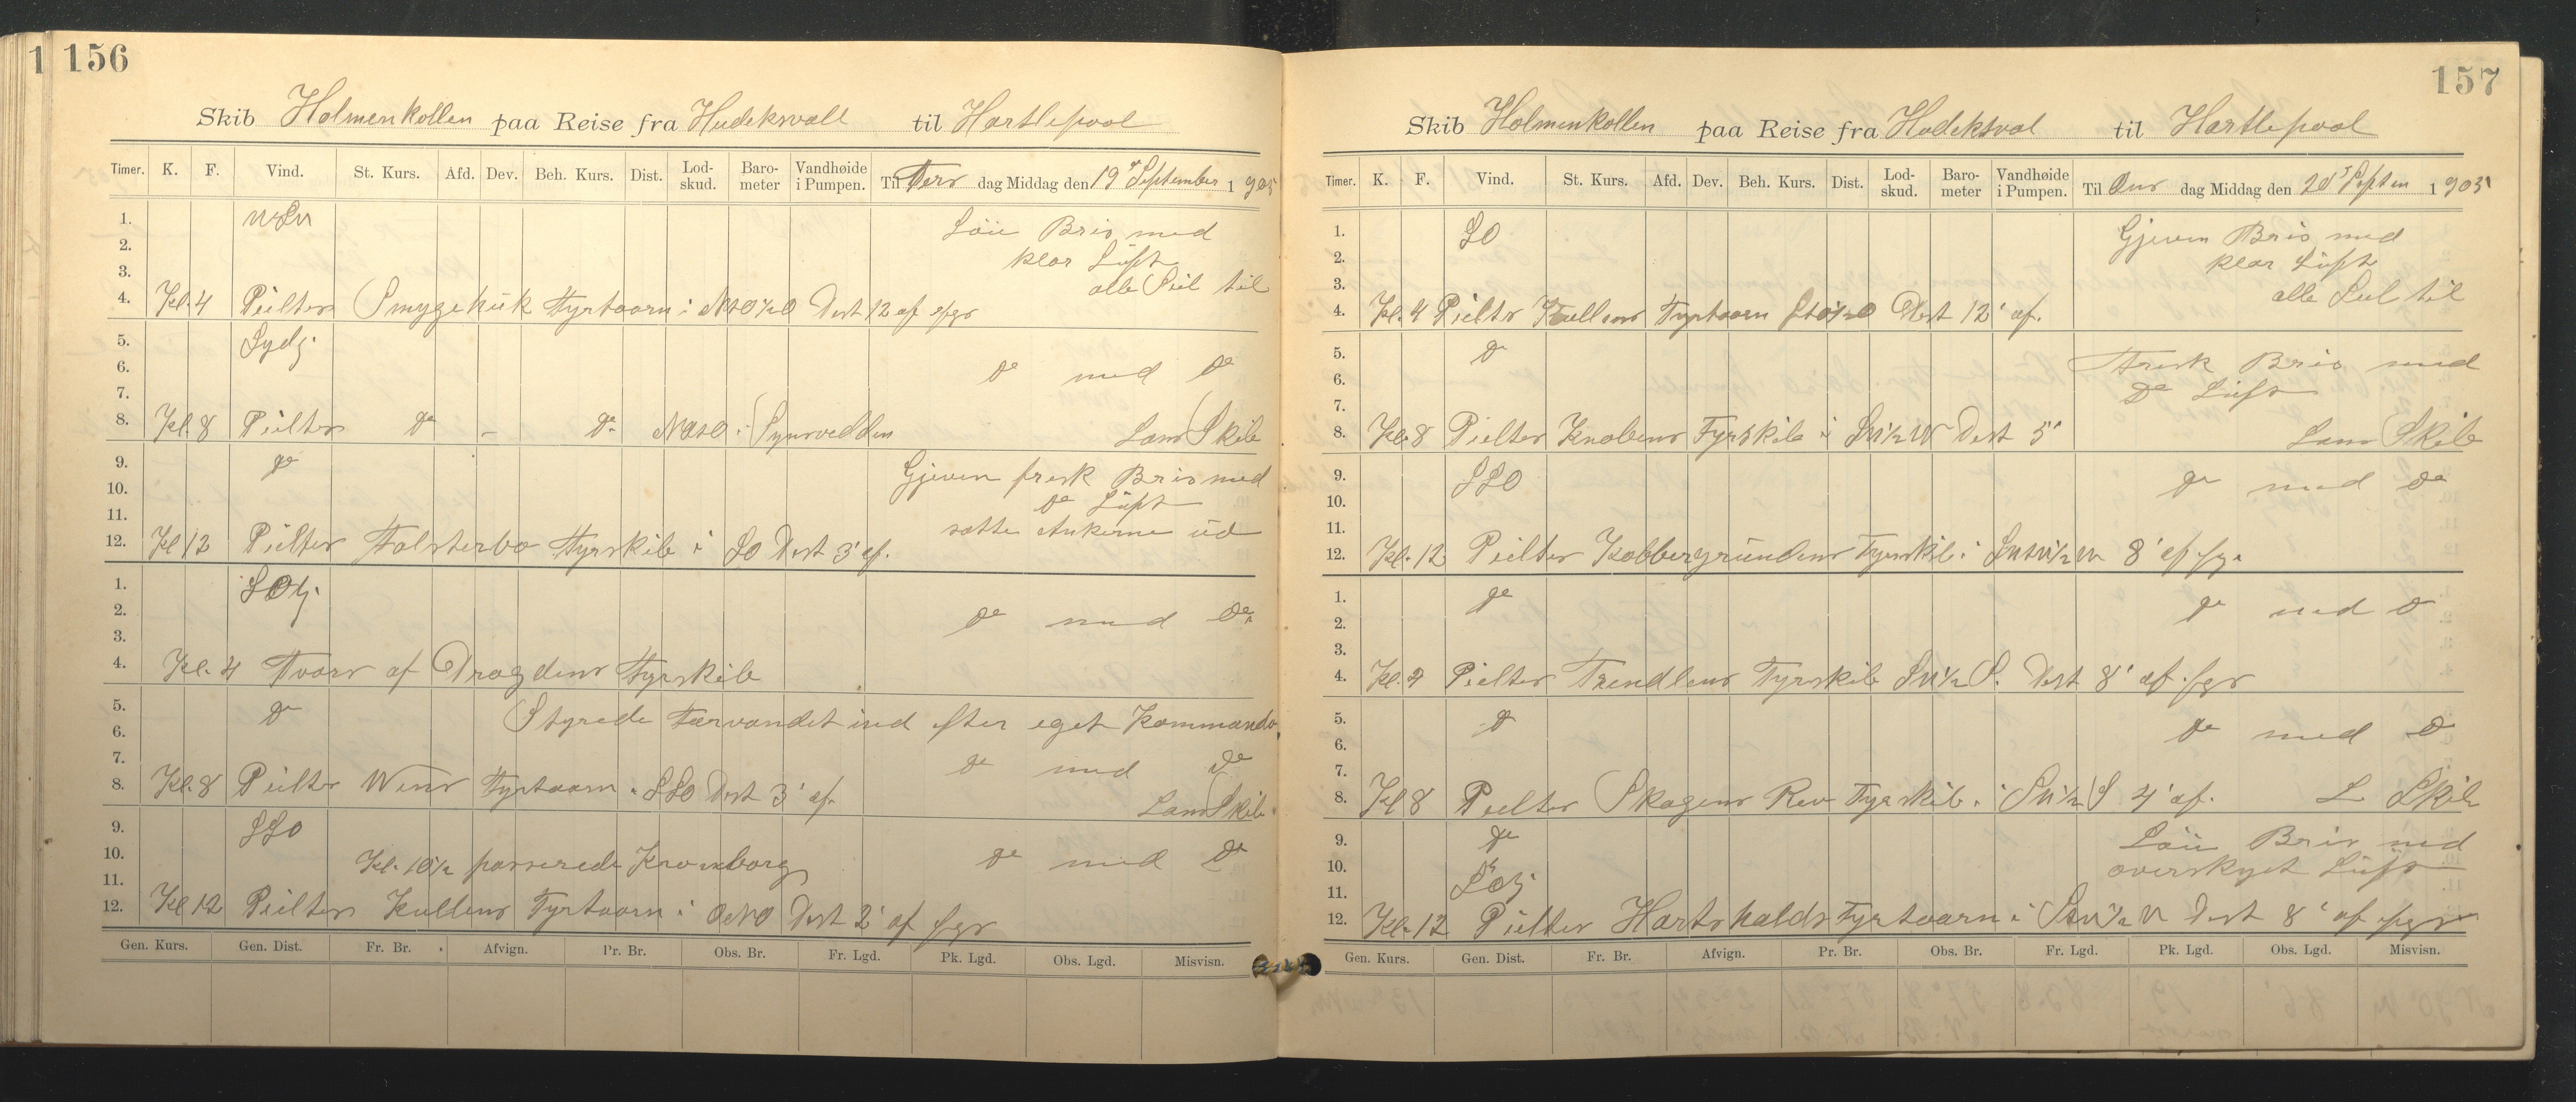 1 156
Skib Holmenkollen paa Reise fra Hudeksvall til Hartlepool
Timer. K. F. Vind. St. Kurs. Afd. Dev. Beh. Kurs. Dist. Lod-skud. Baro-meter Vandhøide i Pumpen. Til Ters dag Middag den 19 September 1905
1. Löie Bris med
2. klar Luft
3. alle Seil til
4. Kl. 4 Peilter Smygehuk Fyrtaarn i Dist 12 af
5. Sydlj.
6. do med do
7.
8. Kl. 8 Peilter do - do Lans Skib
9. do Gjeven frisk Bris med
10. do Luft
11. satte Ankerne ud
12. Kl 12 Peilter Falsterbo Fyrskib i SO Dist 3' af.
1. SOlj.
2. do med do
3.
4. Kl. 4 Tvars af Drogdens Fyrskib
5. do Styrede Farvandet ind efter eget Kommando
6.
7. do med do
8. Kl. 8 Peilter Fyrtaarn i SSO Dist 3' af. Lans Skib
9. SSO
10. Kl. 10½ passerede Kronborg do med do
11.
12. Kl 12 Peilter Kullens Fyrtaarn i ONO Dist 2' af
Gen. Kurs. Gen. Dist. Fr. Br. Afvign. Pr. Br. Obs. Br. Fr. Lgd. Pk. Lgd. Obs. Lgd. Misvisn.
157
Skib Holmenkollen paa Reise fra Hudeksval til Hartlepool
Timer. K. F. Vind. St. Kurs. Afd. Dev. Beh. Kurs. Dist. Lod-skud. Baro-meter Vandhøide i Pumpen. Til Ons dag Middag den 20 Septem 1905
1. SO Gjeven Bris med
2. klar Luft
3. alle Seil til
4. Kl. 4 Peilter Kullens Fyrtaarn Dist 12' af.
5. do Frisk Bris med
6. do Luft
7.
8. Kl. 8 Peilter Knobens Fyrskib i SW½W Dist 5' Lans Skib
9. SSO do med do
10.
11.
12. Kl. 12 Peilter Kobbergrundens Fyrskib i 8' af
1. do do med do
2.
3.
4. Kl. 4 Peilter Trendlens Fyrskib SW½S. Dist 8' af
5. do do med do
6.
7.
8. Kl 8 Peilter Skagens Rev Fyrskib i SW½S 4' af. L Skib
9. do Löie Bris med
10. overskyet Luft
11. SOlj
12. Kl. 12 Peilter Hartshalds Fyrtaarn i Dist 8' af
Gen. Kurs. Gen. Dist. Fr. Br. Afvign. Pr. Br. Obs. Br. Fr. Lgd. Pk. Lgd. Obs. Lgd. Misvisn.